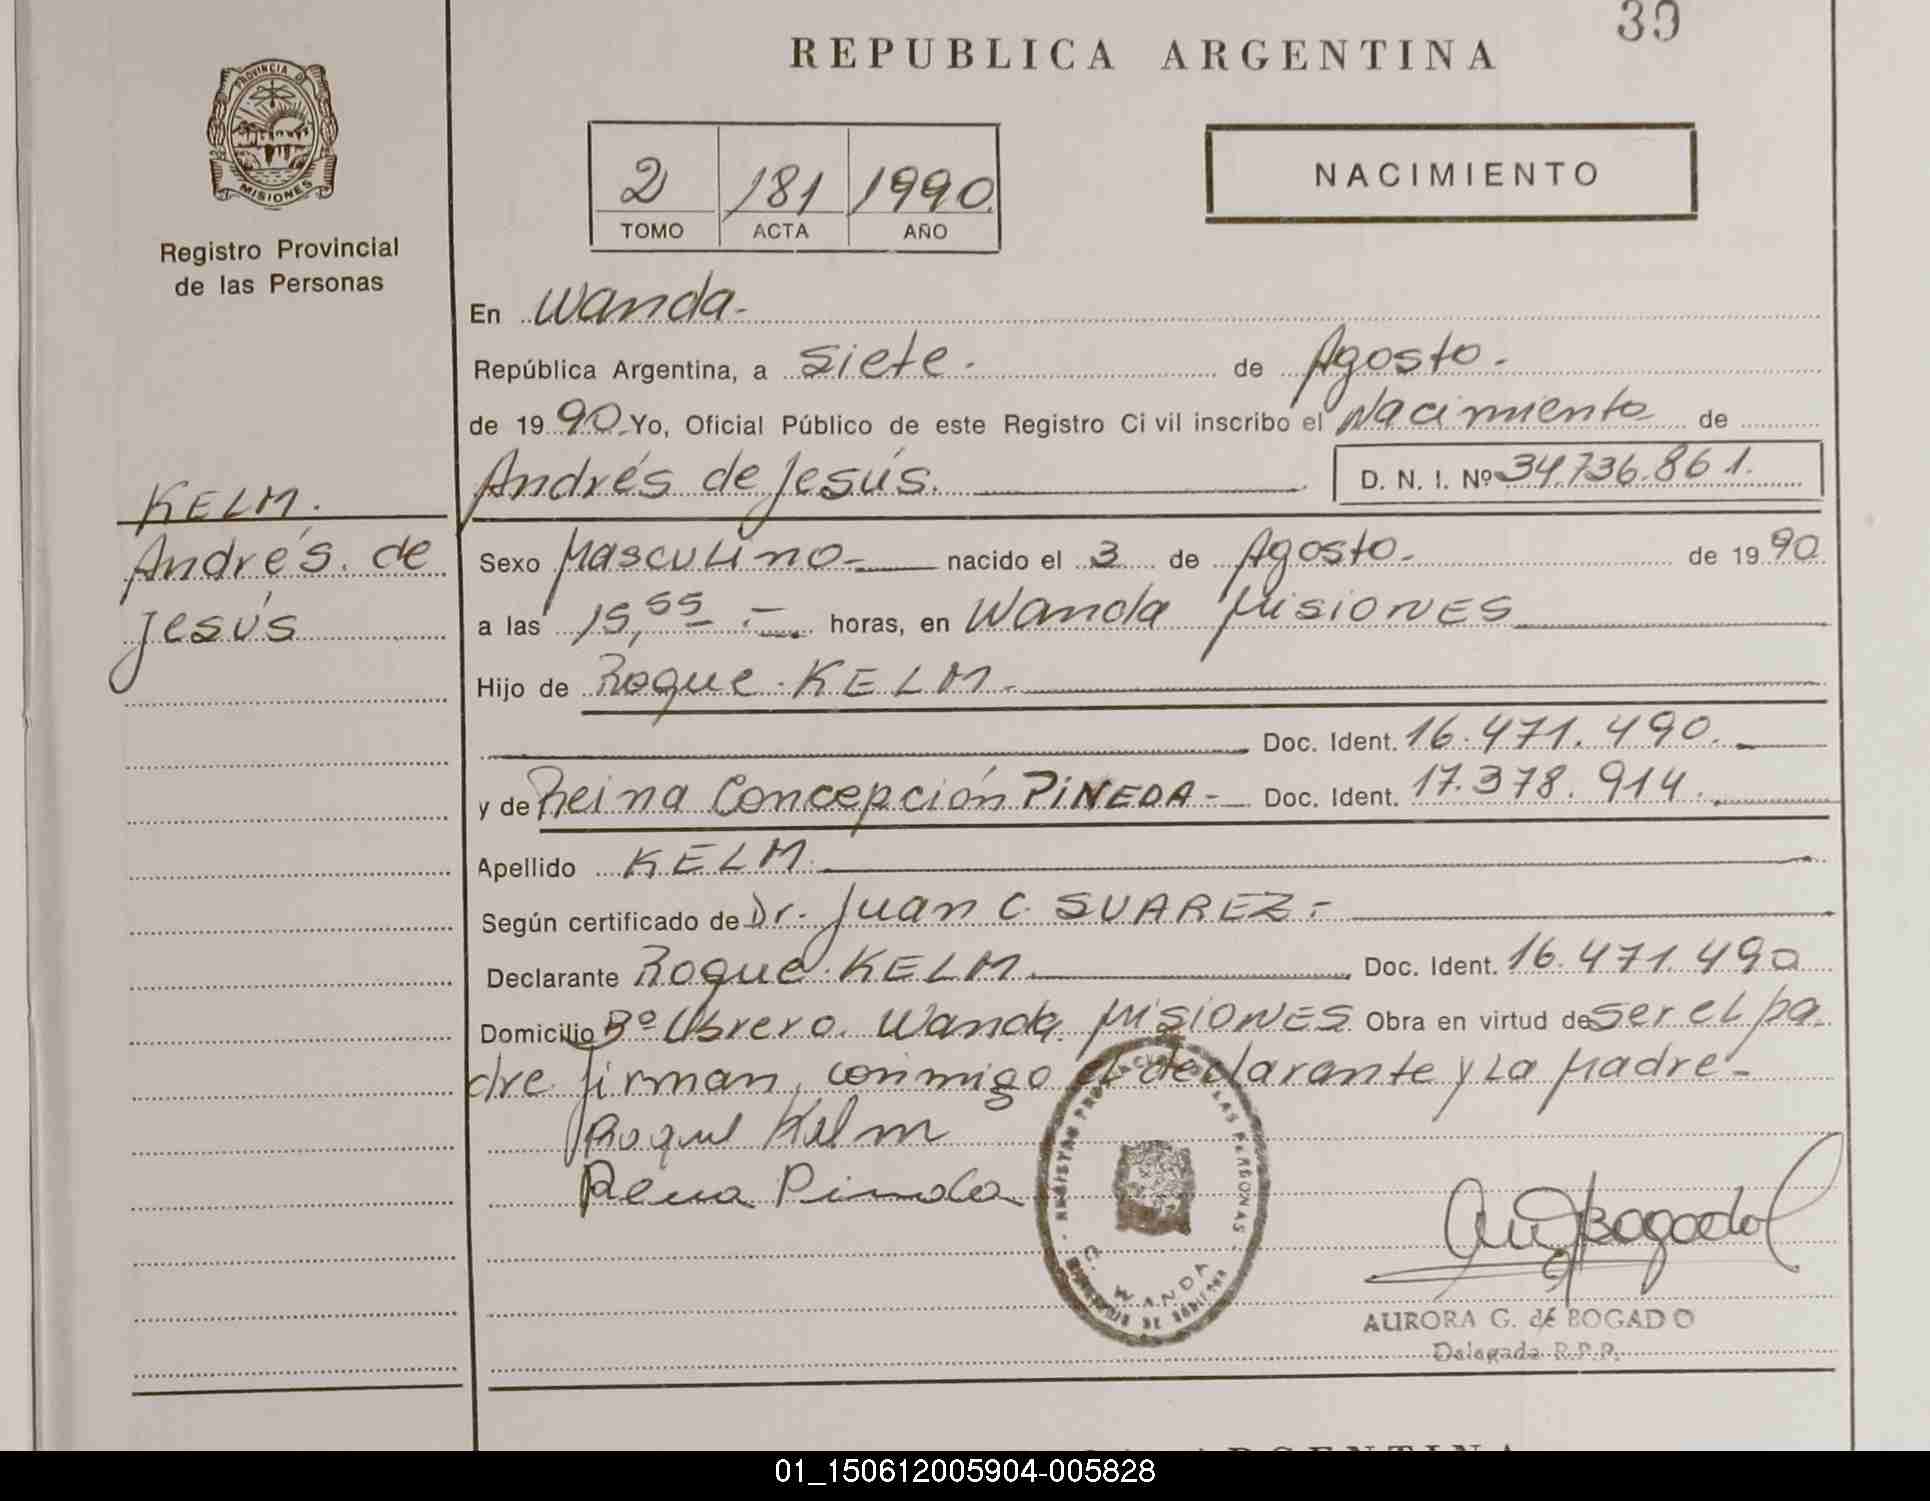 39
REPUBLICA ARGENTINA
PROVINCIA DE
MISIONES
Registro Provincial
de las Personas
2 181 1990
TOMO ACTA AÑO
NACIMIENTO
En Wanda-
República Argentina, a siete. de Agosto.
de 1990 Yo, Oficial Público de este Registro Civil inscribo el Nacimiento de
Andrés de Jesús. D. N. I. Nº 34.736.861.
KELM.
Andrés. de
Jesús
Sexo Masculino- nacido el 3 de Agosto. de 1990
a las 15,55 - horas, en Wanda Misiones
Hijo de Roque KELM.
Doc. Ident. 16.471.490.
y de Reina Concepción PiNEDA- Doc. Ident. 17.378.914.
Apellido KELM.
Según certificado de Dr. Juan C. SUAREZ.-
Declarante Roque KELM Doc. Ident. 16.471.490
Domicilio Bº Obrero. Wanda. Misiones. Obra en virtud de ser el pa
dre firman, conmigo el declarante y La Madre-
Roque Kelm
Reina Pineda
REGISTRO PROVINCIAL DE LAS PERSONAS
WANDA
AURORA G. de BOGADO
Delegada R.P.P.
ARGENTINA
01_150612005904-005828